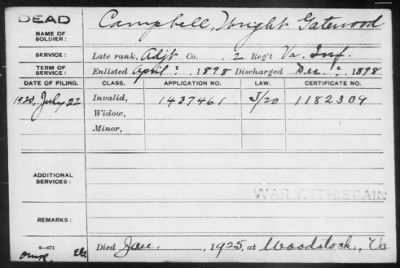 DEAD
NAME OF SOLDIER: Campbell, Wright Gatewood
SERVICE: Late rank, Adjt Co. 2 Reg't Va. Inf.
TERM OF SERVICE: Enlisted April ?, 1898 Discharged Dec. ?, 1898
DATE OF FILING. CLASS. APPLICATION NO. LAW. CERTIFICATE NO.
1920, July 22 Invalid, 1437461 J/20 1182309
Widow,
Minor,
ADDITIONAL SERVICES:
WAR WITH SPAIN
REMARKS:
Died Jan. , 1925, at Woodstock, Va